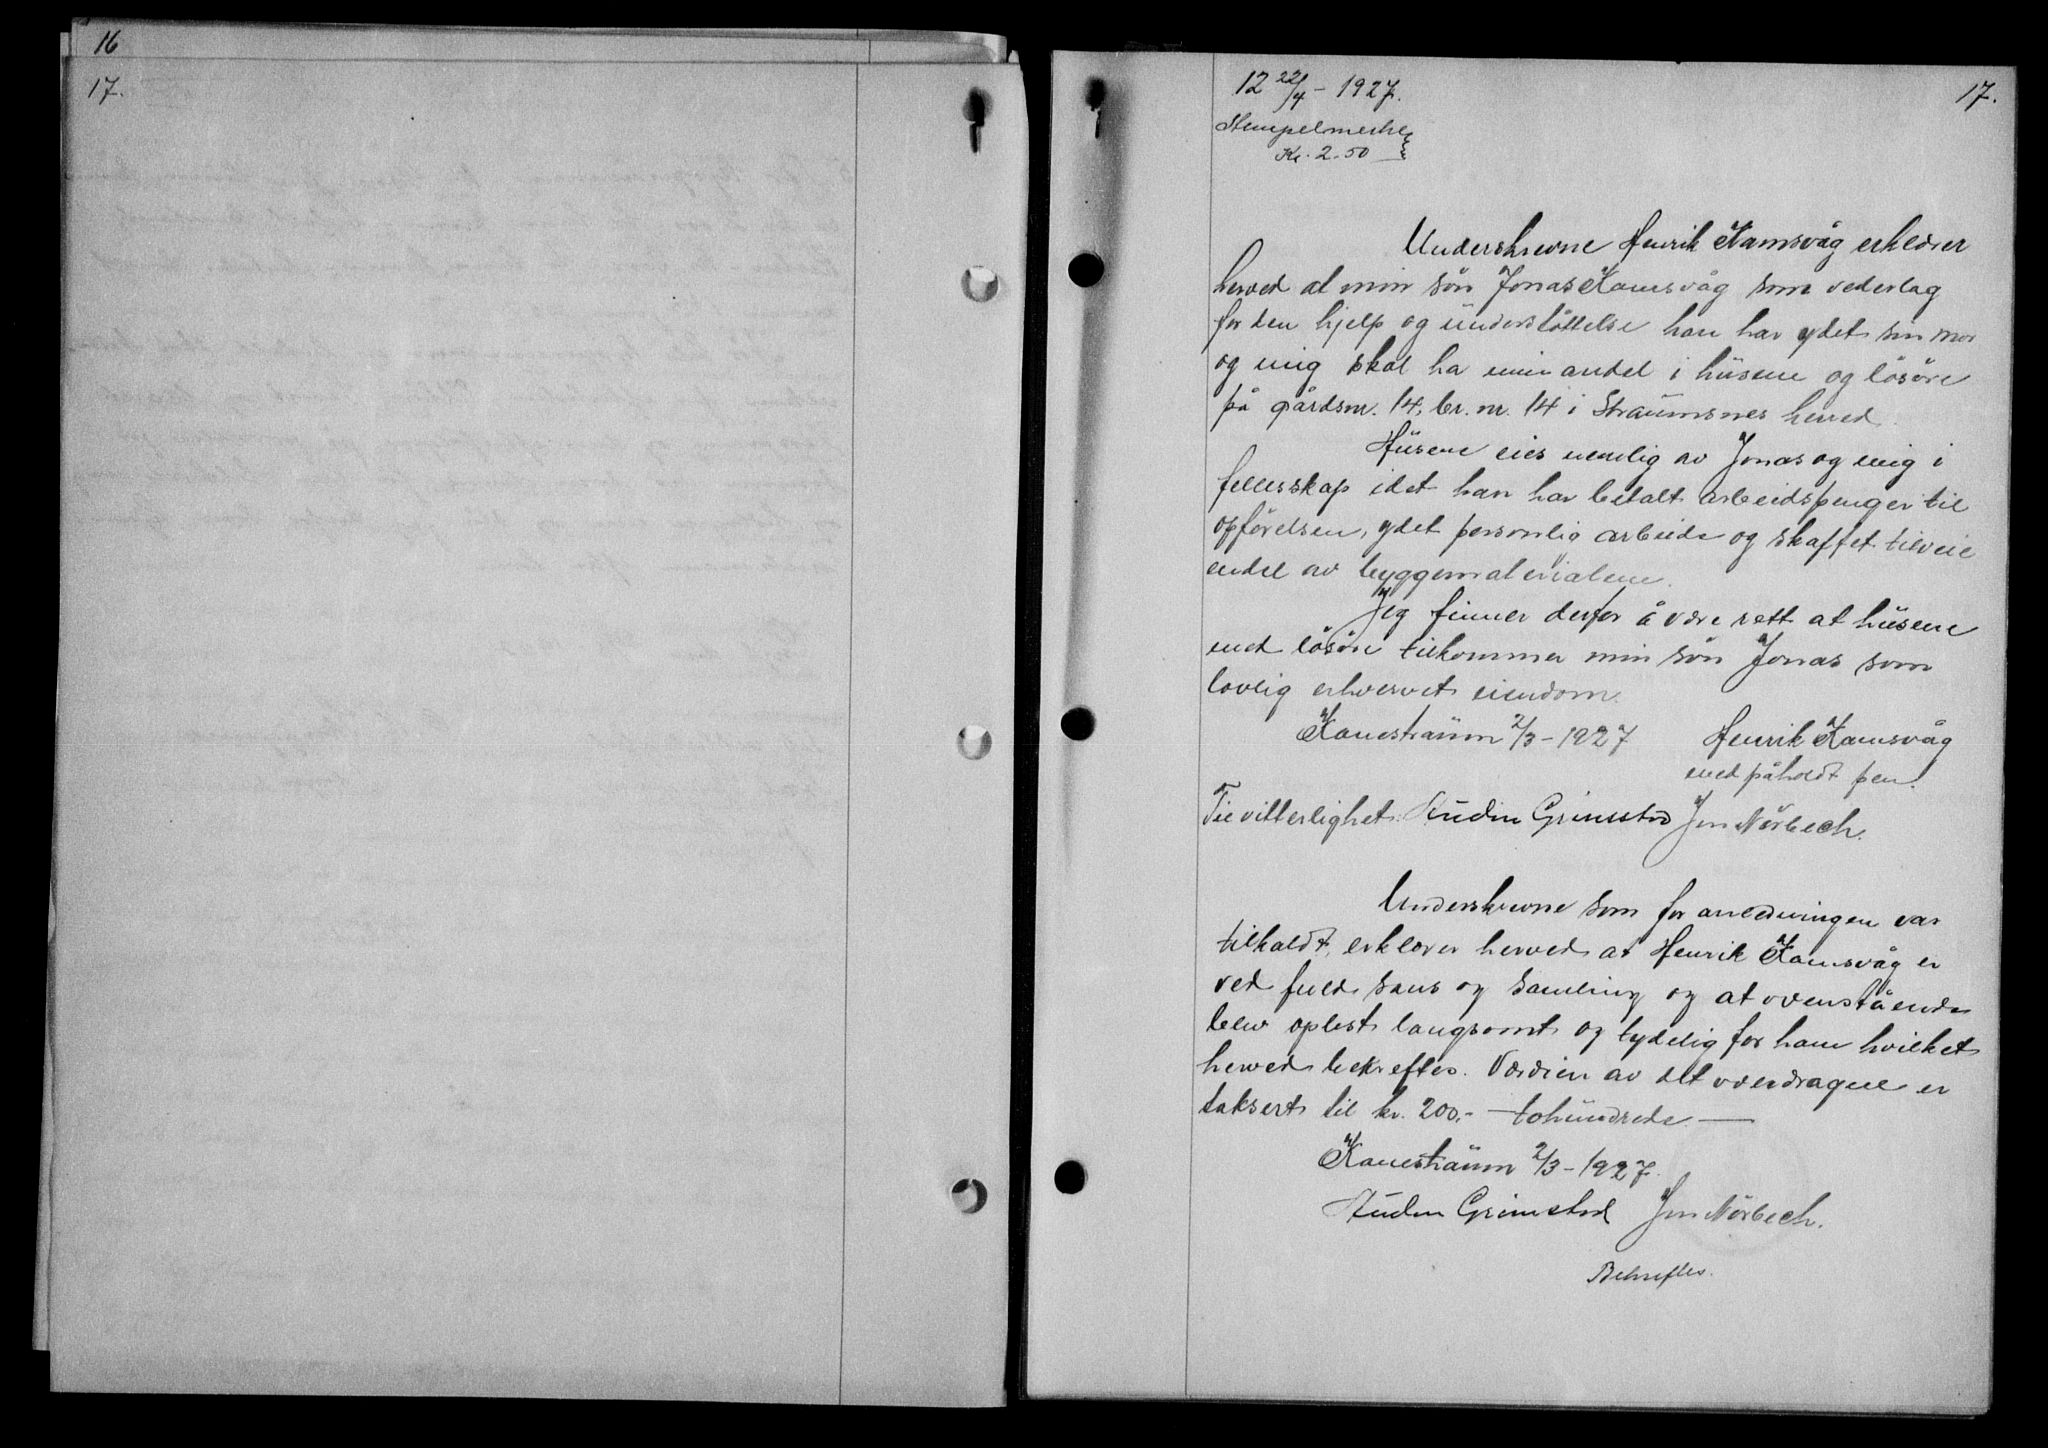 16
17.
12 22/4 - 1927.
17.
Stempelmerke
Kr. 2.50
Underskrevne Henrik Kamsvåg erklærer
herved at min søn Jonas Kamsvåg som vederlag
for den hjelp og understøttelse han har ydet sin mor
og mig skal ha min andel i husene og løsøre
på gårdsnr. 14, br. nr. 14 i Straumsnes herred.
Husene eies nemlig av Jonas og mig i
fellesskap idet han har betalt arbeidspenger til
opførelsen, ydet personlig arbeide og skaffet tilveie
endel av byggematerialene.
Jeg finner derfor å være rett at husene
med løsøre tilkommer min søn Jonas som
lovlig erhvervet eiendom.
Kanestraum 2/3 - 1927 Henrik Kamsvåg
med påholdt pen.
Til vitterlighet: Grimstad Jon Nørbech.
Underskrevne som for anledningen var
tilkaldt, erklærer herved at Henrik Kamsvåg er
ved fuld sans og samling og at ovenstående
blev oplest langsomt og tydelig for ham hvilket
herved bekreftes. Værdien av det overdragne er
taksert til kr. 200,- tohundrede
Kanestraum 2/3 - 1927.
Grimstad Jon Nørbech.
Bekreftes.